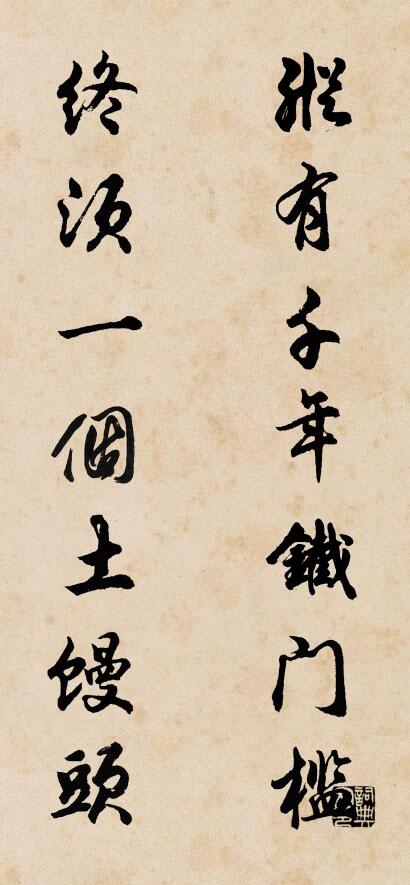 縱有千年鐵门檻
終須一個土饅頭
詞典